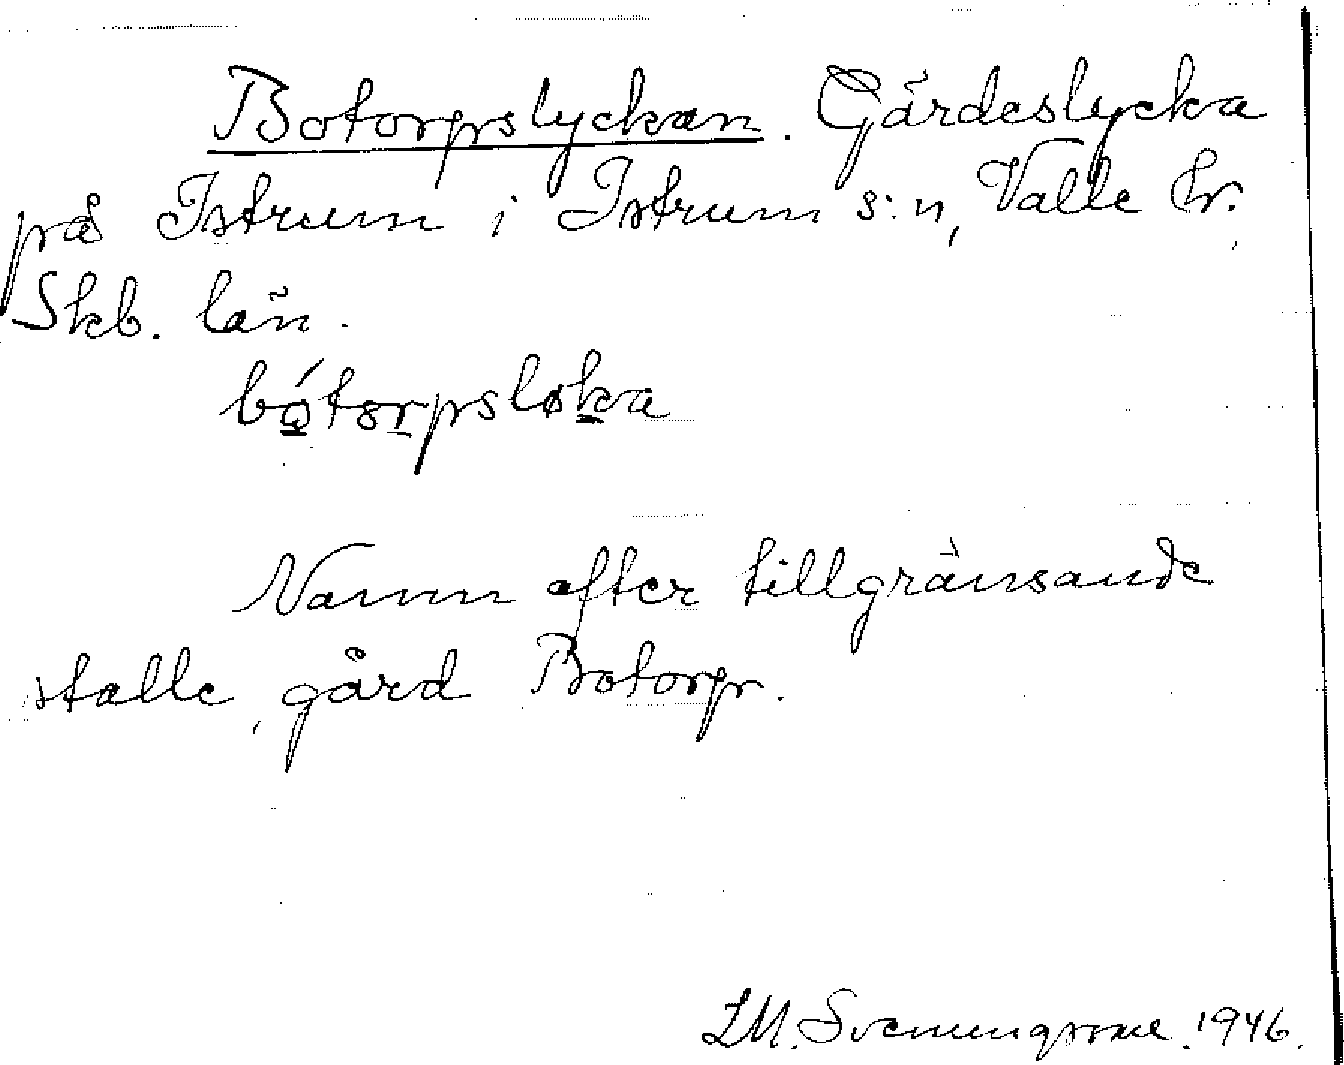 Botorpslyckan. Gärdeslycka
på Istrum i Istrum s:n, Valle hr.,
Skb. län.
bótorpsløka
Namn efter tillgränsande
stalle, gård Botorp.
1946.